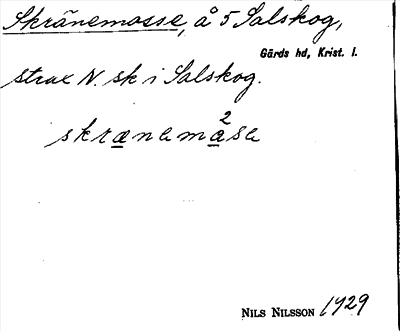 Skränemosse, å 5 Salskog,
Gärds hd, Krist. l.
strax N. sk i Salskog.
skrænemåse
2
NILS NILSSON 1929